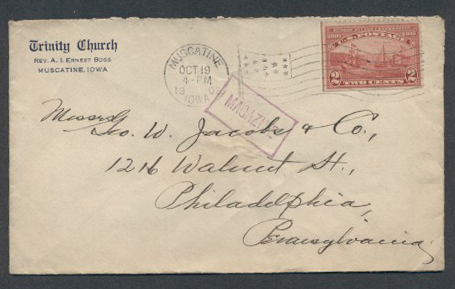 Trinity Church
REV. A. I. ERNEST BOSS
MUSCATINE, IOWA
MUSCATINE
OCT 19
4-PM
IOWA
2 2
TWO CENTS
MAGAZINE
Messrs Geo. W. Jacobs & Co.,
1216 Walnut St.,
Philadelphia,
Pennsylvania